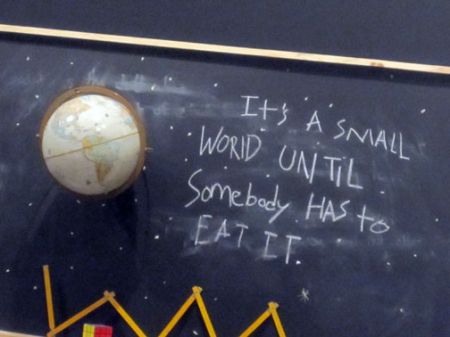 It's A SMALL
WORlD UNTiL
Somebody HAS to
EAT IT